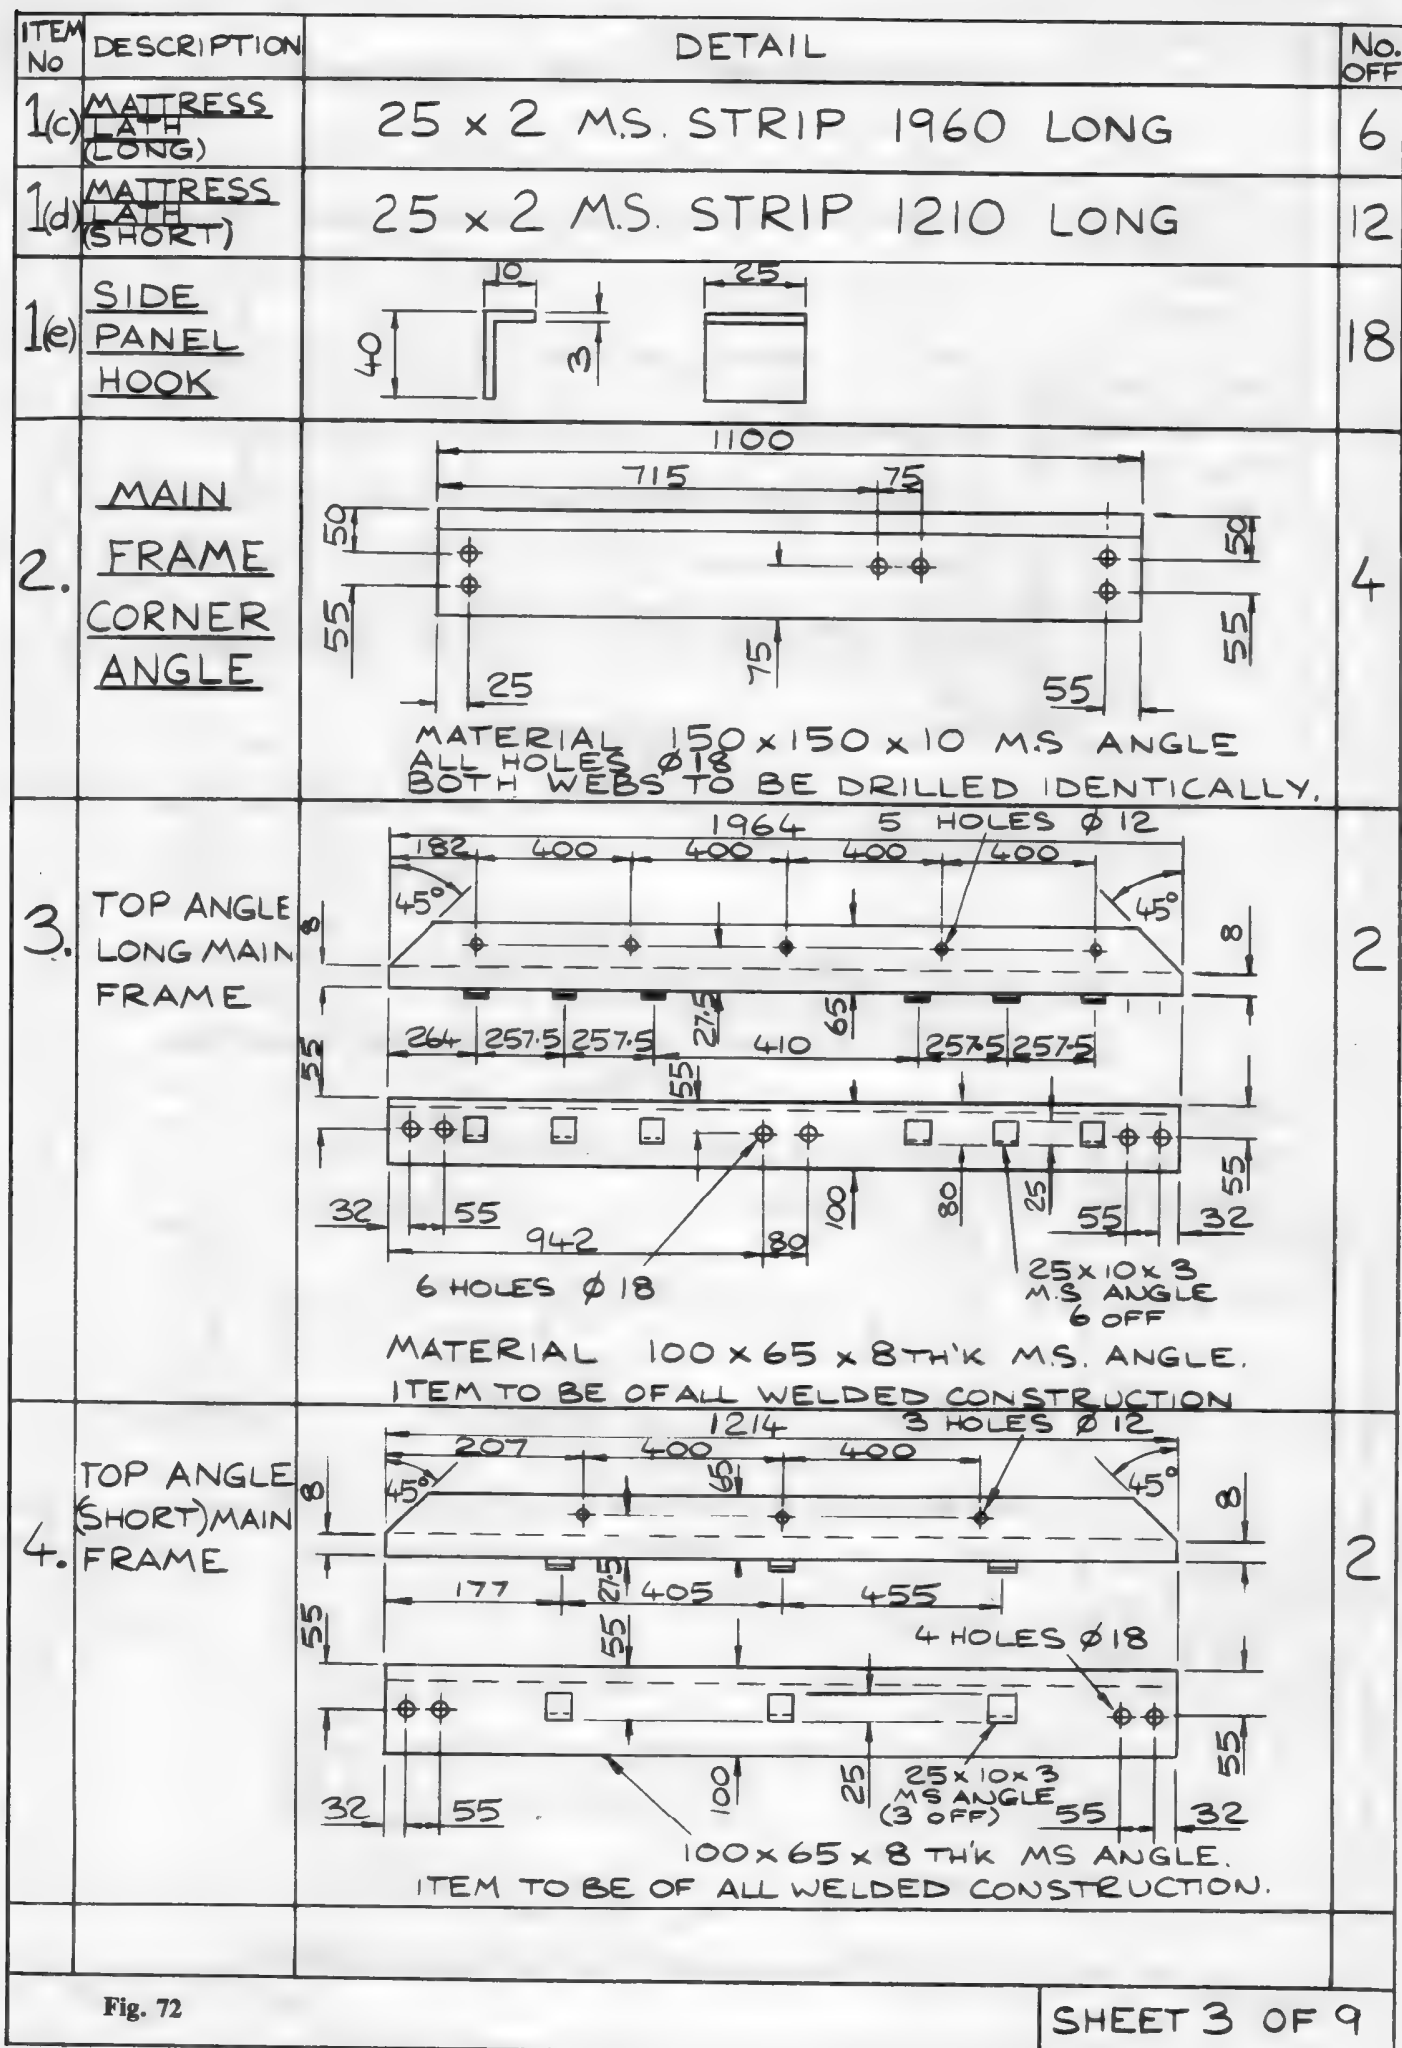 ITEM No DESCRIPTION DETAIL NO. OFF
1(c) MATTRESS LATH (LONG) 25 x 2 M.S. STRIP 1960 LONG 6
1(d) MATTRESS LATH (SHORT) 25 x 2 M.S. STRIP 1210 LONG 12
1(e) SIDE PANEL HOOK 18
10 25
40 3
2. MAIN FRAME CORNER ANGLE 4
1100
715 75
50 50
55 75 55
25 55
MATERIAL 150 x 150 x 10 M.S ANGLE
ALL HOLES Ø 18
BOTH WEBS TO BE DRILLED IDENTICALLY.
3. TOP ANGLE LONG MAIN FRAME 2
1964 5 HOLES Ø 12
182 400 400 400 400
45° 45°
8 8
27.5 65
264 257.5 257.5 410 257.5 257.5
55 55
100 80 25 55
32 55 55 32
942 80
6 HOLES Ø 18
25 x 10 x 3
M.S ANGLE
6 OFF
MATERIAL 100 x 65 x 8 TH'K M.S. ANGLE.
ITEM TO BE OF ALL WELDED CONSTRUCTION
4. TOP ANGLE (SHORT) MAIN FRAME 2
1214 3 HOLES Ø 12
207 400 400
45° 65 45°
8 8
27.5
177 405 455
55 55
4 HOLES Ø 18
100 25 55
25 x 10 x 3
MS ANGLE
(3 OFF)
32 55 55 32
100 x 65 x 8 TH'K MS ANGLE.
ITEM TO BE OF ALL WELDED CONSTRUCTION.
Fig. 72
SHEET 3 OF 9